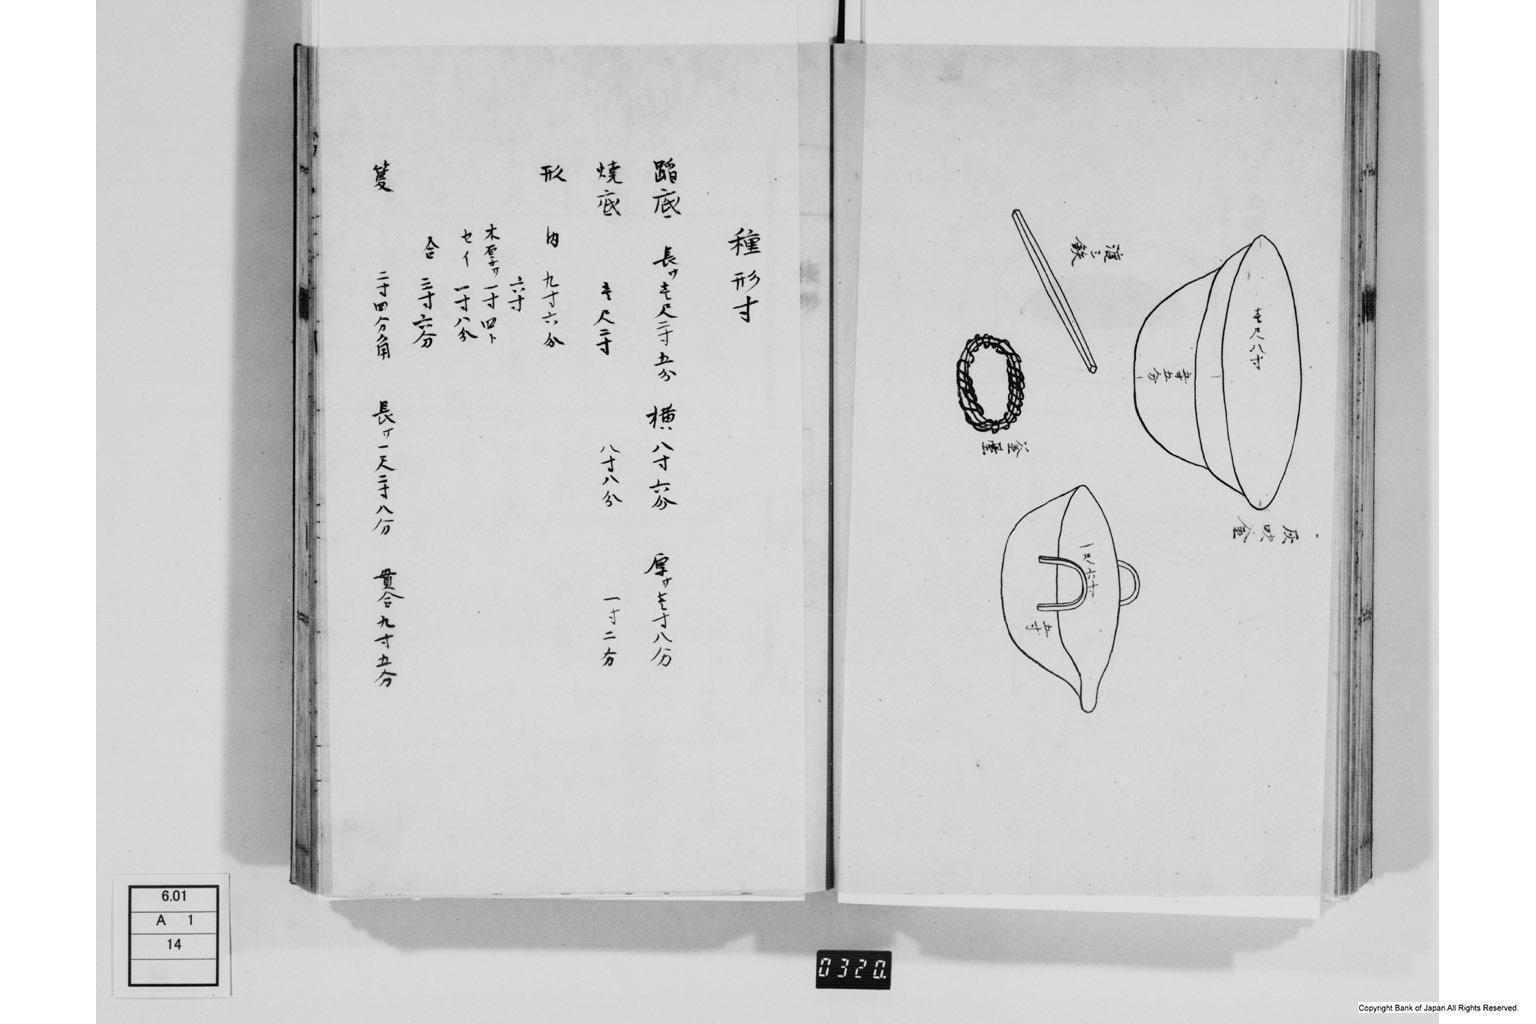 灰吹釜
壱尺八寸
壱寸五分
一尺六寸
五寸
釜置
種形寸
蹈底 長サ壱尺二寸五分 横八寸六分 厚サ壱寸八分
焼底 壱尺二寸 八寸八分 一寸二分
形 内 九寸六分
六寸
木厚サ一寸四ト
セイ 一寸八分
合 三寸六分
二寸四分角 長サ一尺二寸八分 貫合九寸五分
6.01
A 1
14
0320.
Copyright Bank of Japan All Rights Reserved.